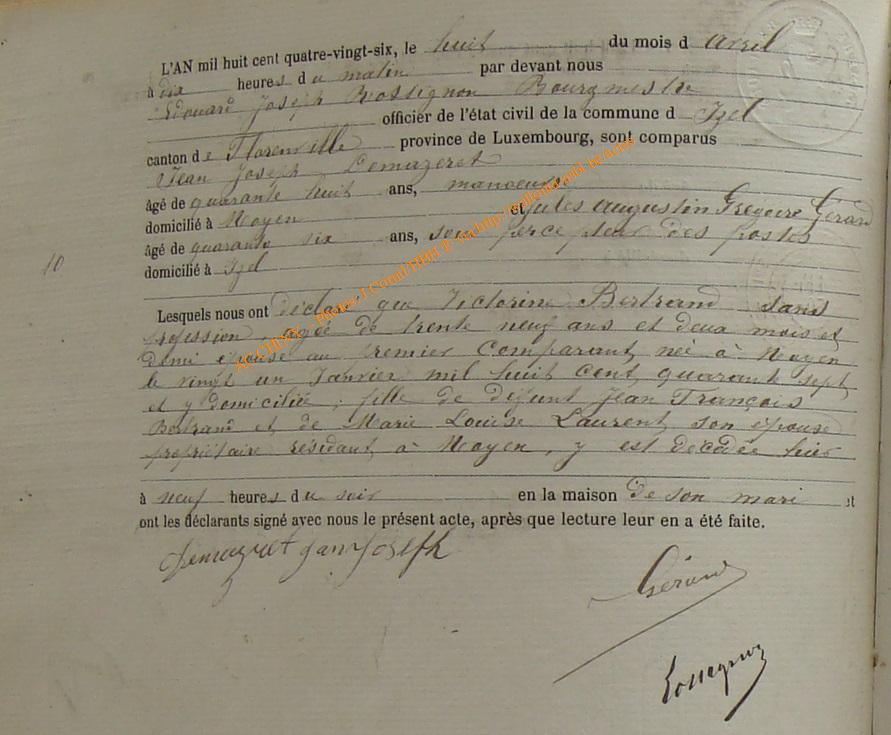 L'AN mil huit cent quatre-vingt-six, le huit du mois d avril
à dix heures du matin par devant nous
Edouard Joseph Rossignon Bourgmestre
officier de l'état civil de la commune d Izel
canton de Florenville province de Luxembourg, sont comparus
Jean Joseph Demazeret
âgé de quarante huit ans, manoeuvre
domicilié à Moyen et Jules Augustin Grégoire Gérard
âgé de quarante six ans, sous percepteur des postes
domicilié à Izel
10
Lesquels nous ont déclaré que Victorine Bertrand sans
profession agée de trente neuf ans et deux mois et
demi épouse au premier Comparant, née à Moyen
le vingt un Janvier mil huit Cent quarante sept
et y domiciliée, fille de défunt Jean François
Bertrand et de Marie Louise Laurent son épouse
propriétaire résidant à Moyen, y est décédée hier
à neuf heures du soir en la maison de son mari et
ont les déclarants signé avec nous le présent acte, après que lecture leur en a été faite.
Demazeret Jean Joseph
Gérard
Rossignon